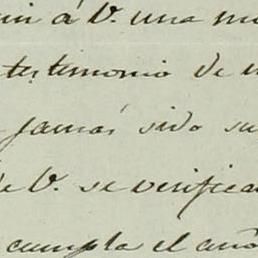 á V. una
testimonio de
jamás sido su
de V. se verifica
cumpla el año